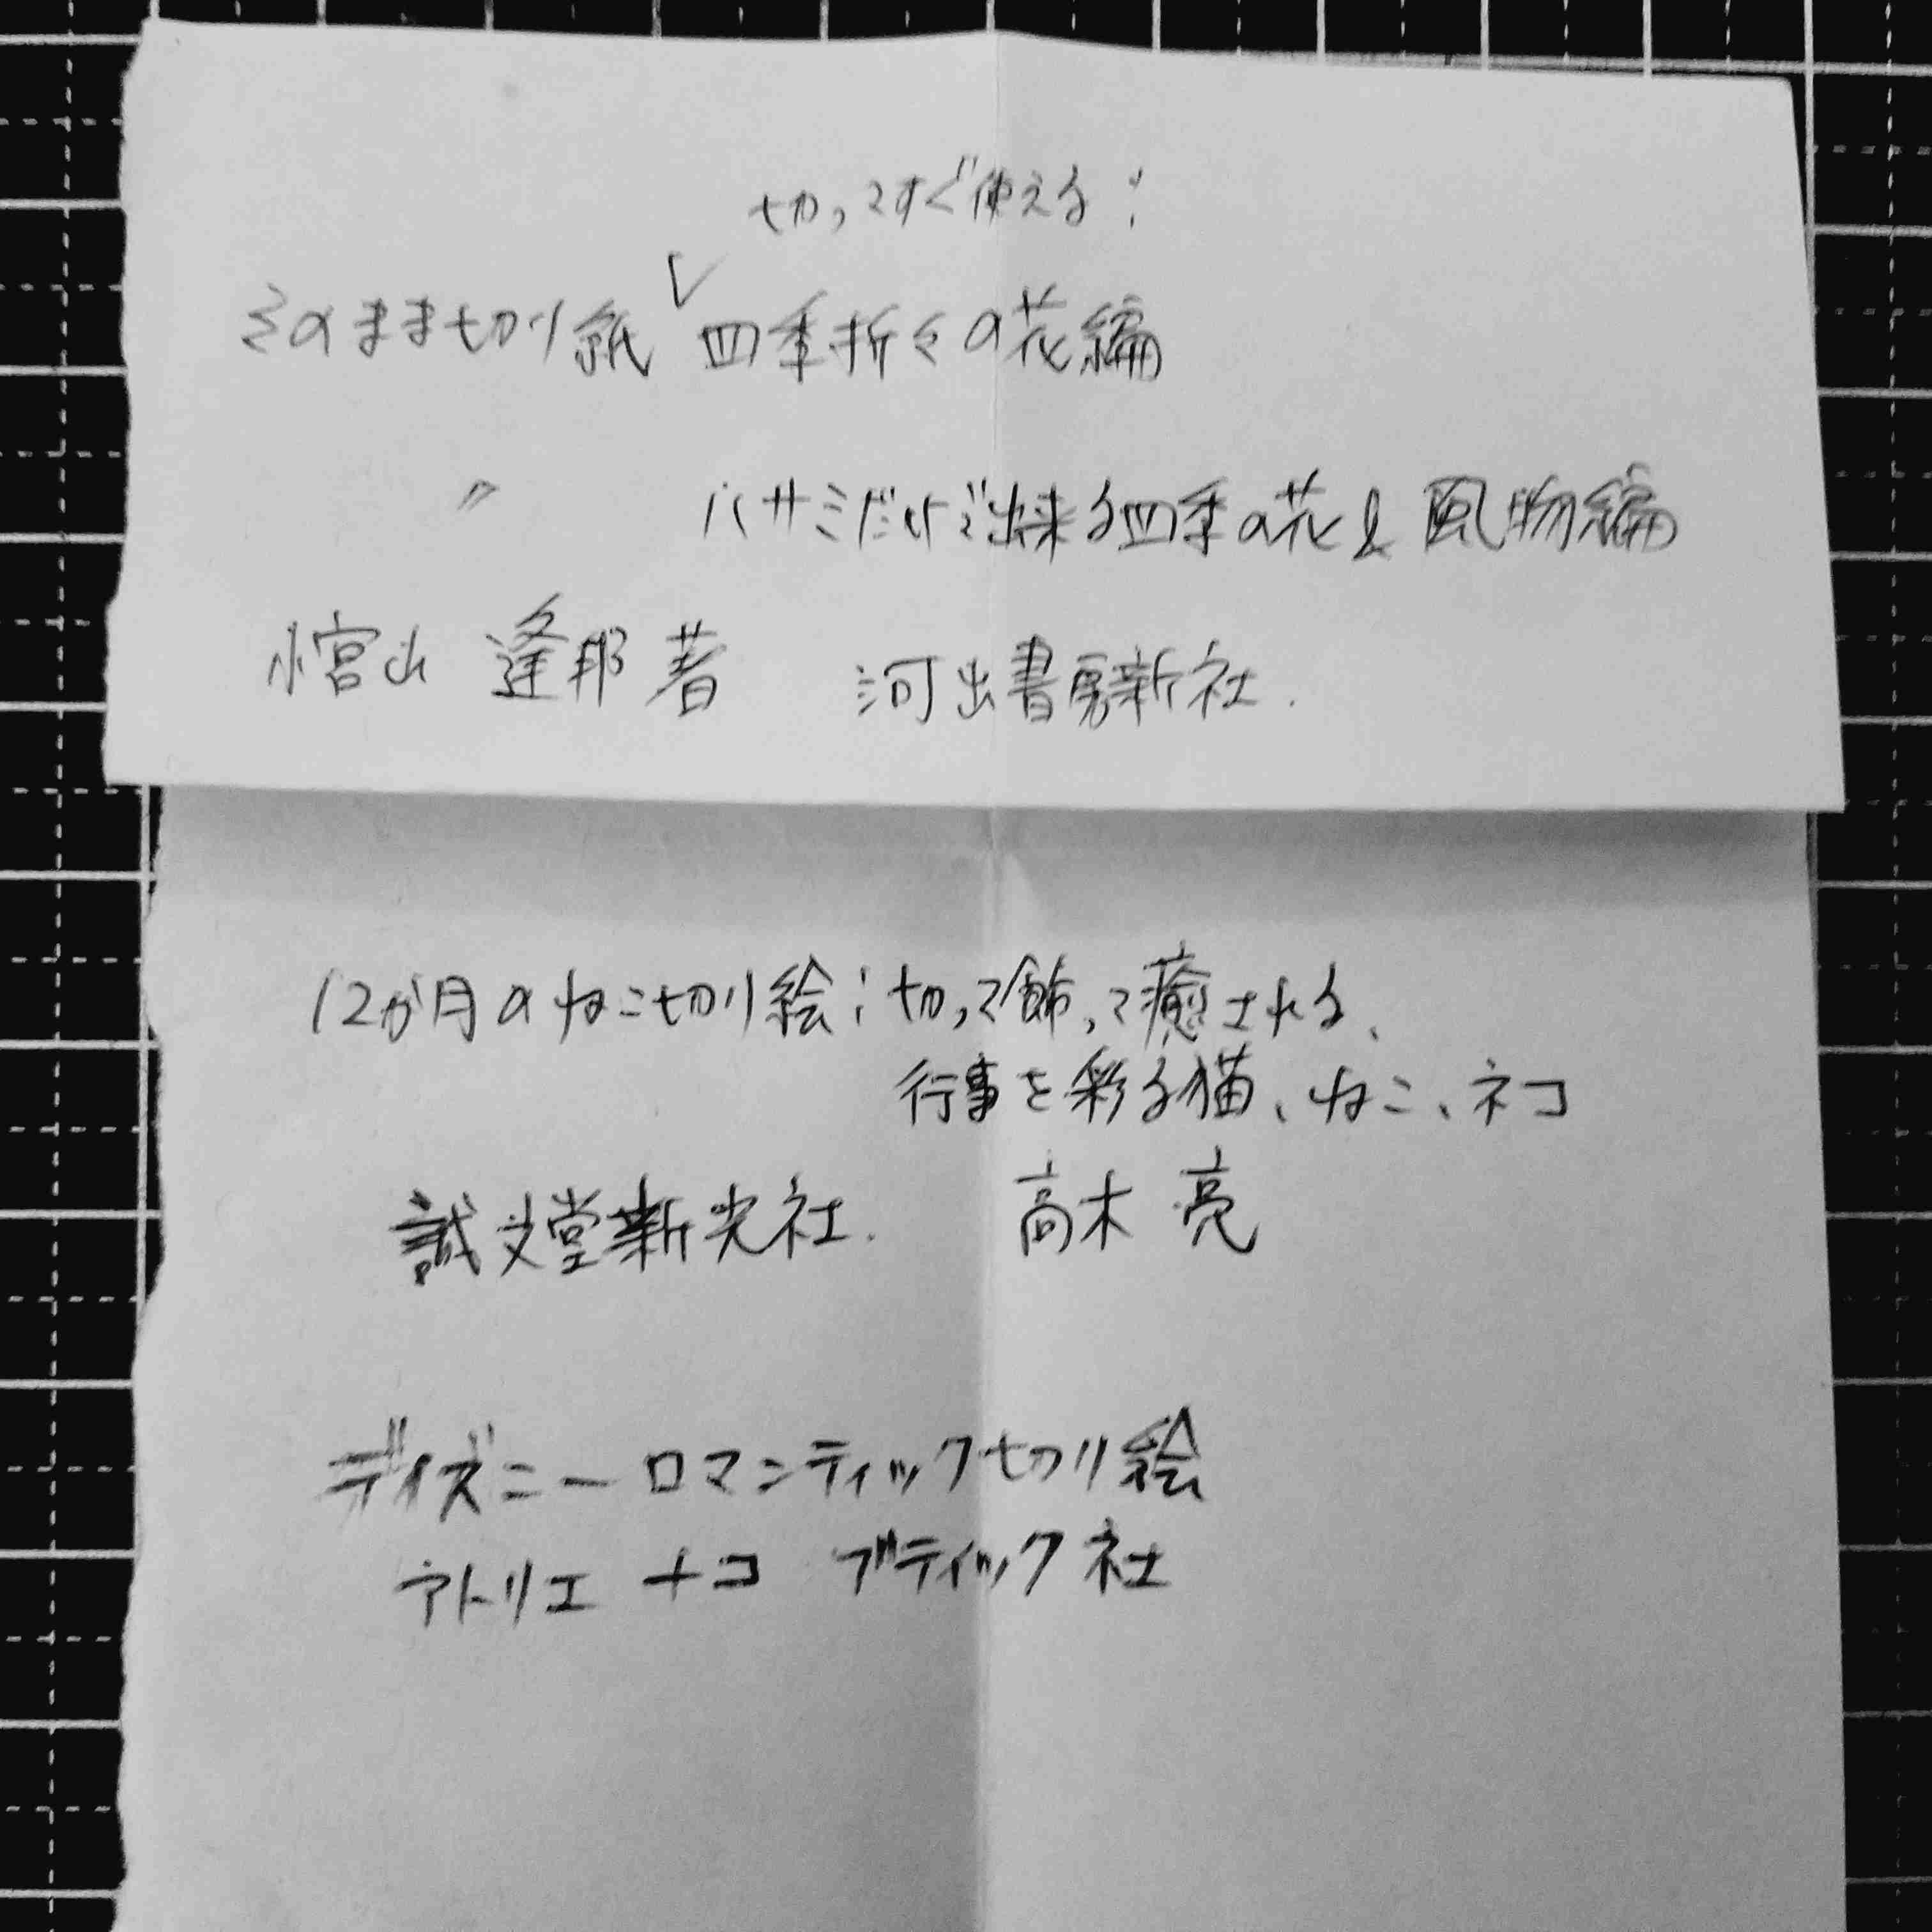 切ってすぐ使える!
そのまま切り紙 四季折々の花編
〃 ハサミだけで出来る四季の花&風物編
小宮山 逢邦 著 河出書房新社.
12か月のねこ切り絵:切って飾って癒される、
行事を彩る猫、ねこ、ネコ
誠文堂新光社. 高木 亮
ディズニーロマンティック切り絵
アトリエ ナコ ブティック社